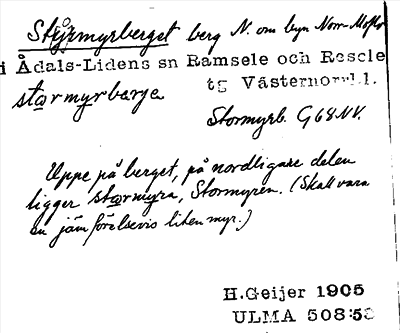 Stårmyrberget berg N. om byn Norr-Moflo
i Ådals-Lidens sn Ramsele och Resele
tg Västernorrl.l.
starmyrbærje
Stormyrb. G68NV.
Uppe på berget, på nordligare delen
ligger starmyra, Stormyren. (Skall vara
en jämförelsevis liten myr.)
H.Geijer 1905
ULMA 508:53